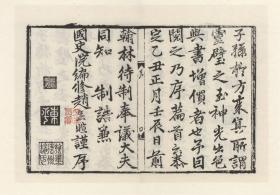 子孫於方來真所謂
靈璧之玉神光出邑
與書增價者也予因
閱之乃序篇首云泰
定乙丑正月壬辰日前
翰林待制奉議大夫
同知 制誥兼
國史院編修趙 謹序